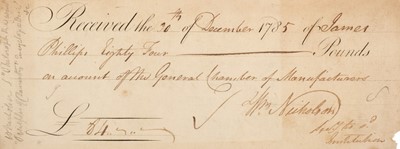 Received the 20th of December 1785 of James
Phillips Eighty Four Pounds
on account of the General Chamber of Manufacturers
£ 84 Wm Nicholson
Institution